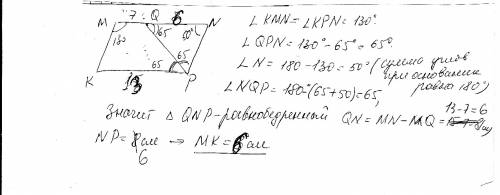 M "7" Q 6 N
130 65 50°
65 65
K 13 P
∠KMN = ∠KPN = 130°
∠QPN = 130° - 65° = 65°
∠N = 180 - 130 = 50° (сумма углов
при основании
равна 180°)
∠NQP = 180° - (65 + 50) = 65,
Значит △ QNP - равнобедренный QN = MN - MQ = 13 - 7 = 6
NP = 6 см → MK = 6 см